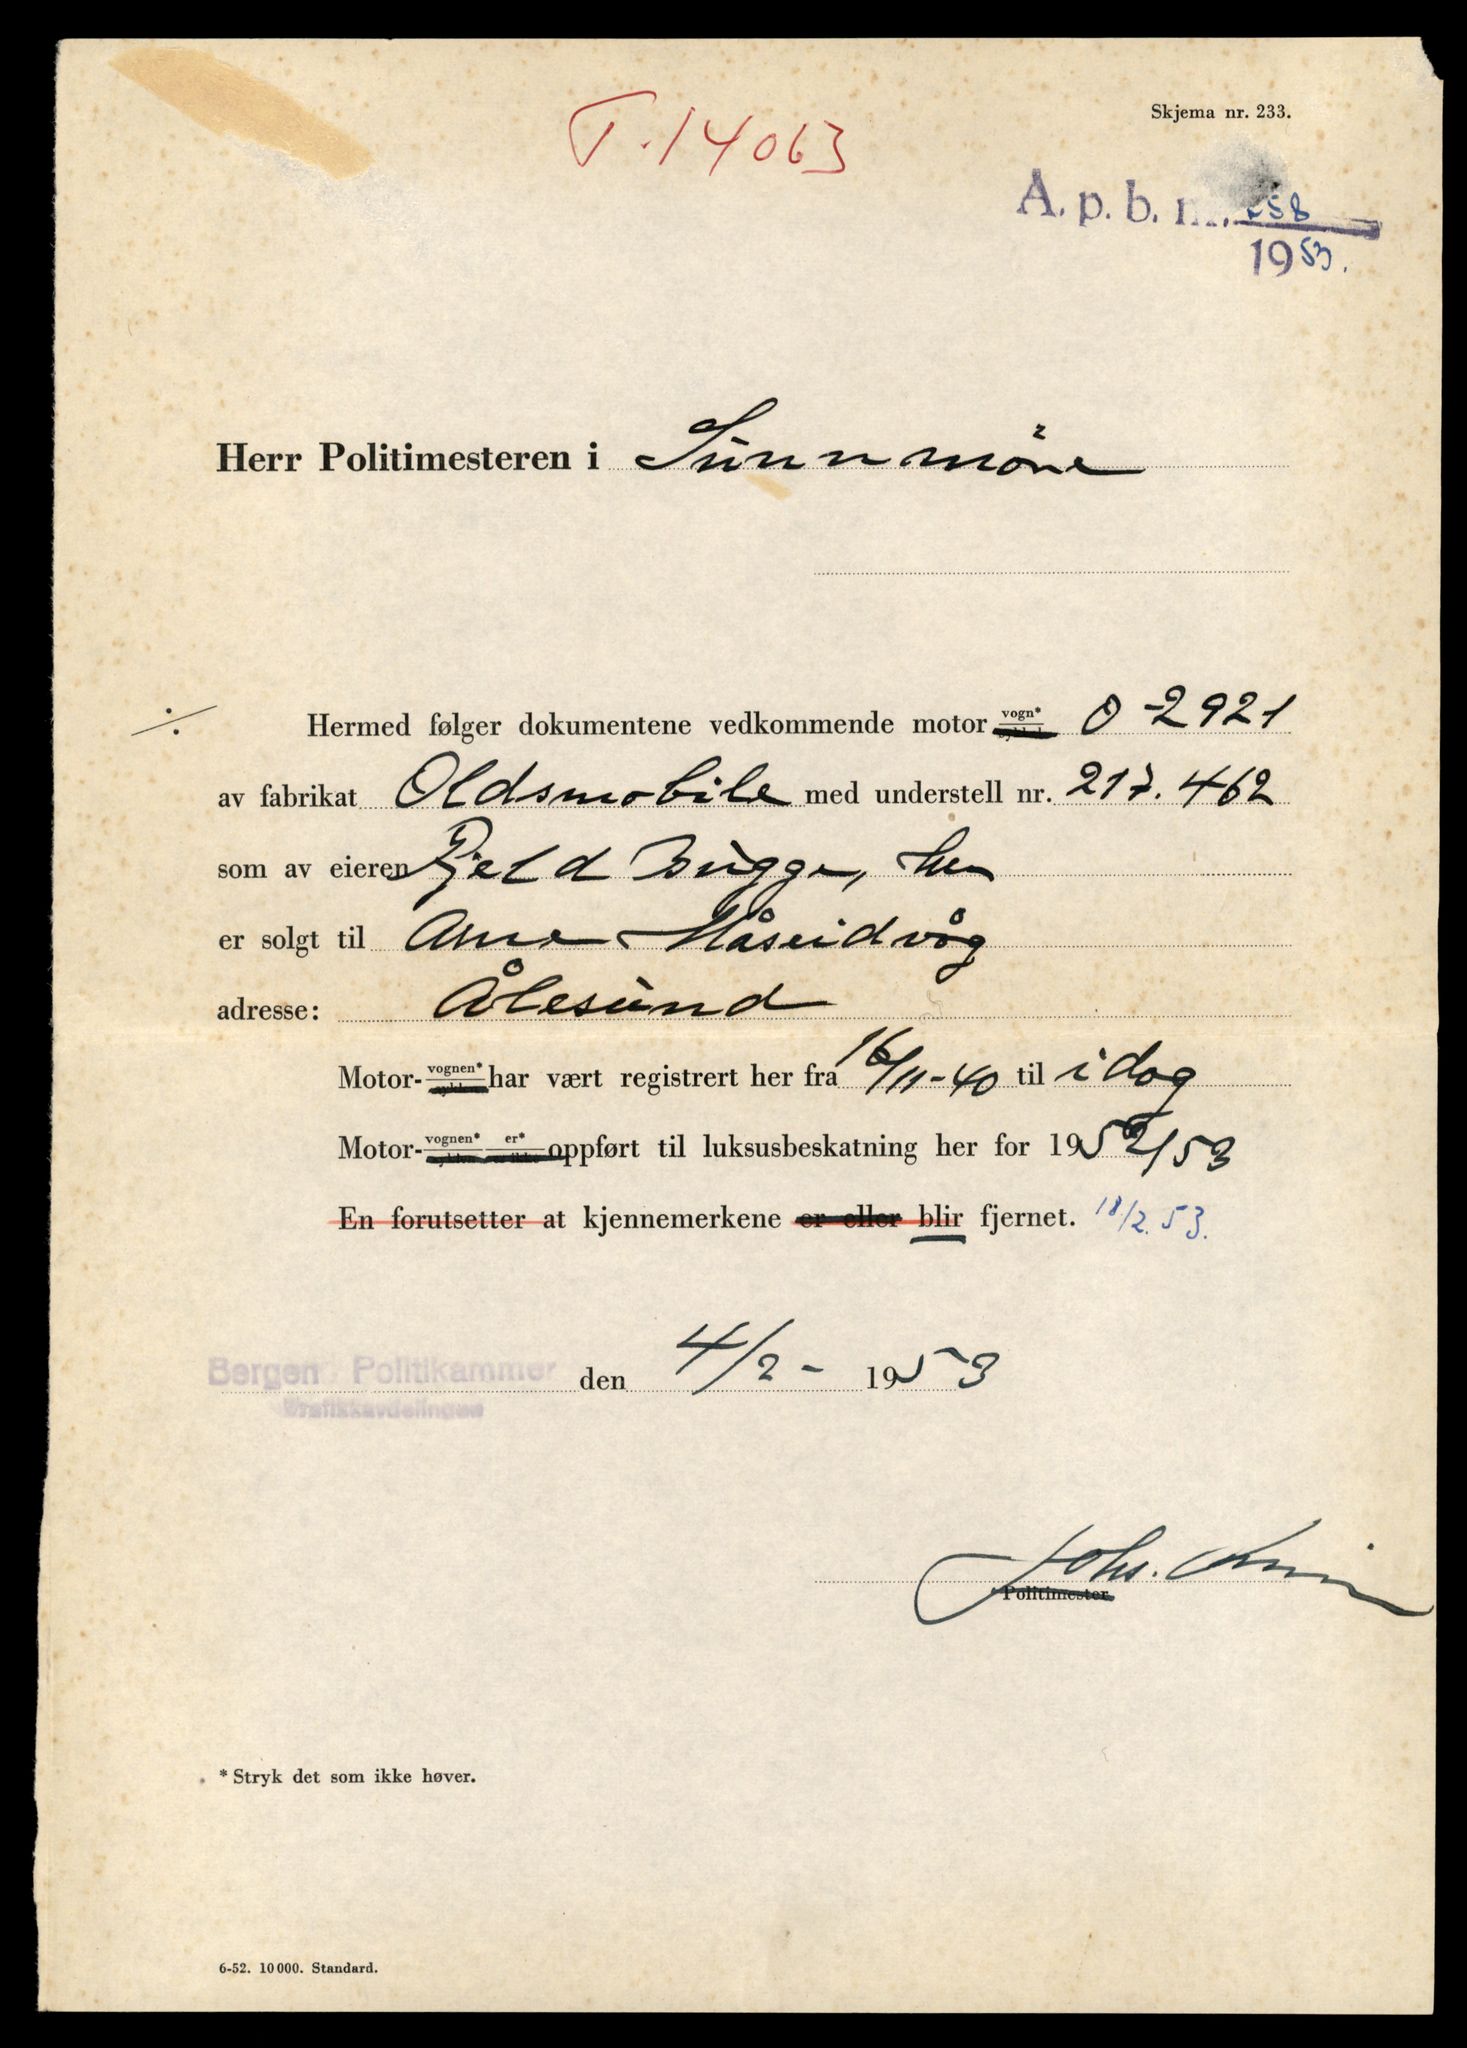 T.14063
Skjema nr. 233.
A. p. b. nr. 258
1953.
Herr Politimesteren i Sunnmöre
Hermed følger dokumentene vedkommende motor vogn* O-2921
av fabrikat Oldsmobile med understell nr. 217.462
som av eieren Kjeld Bugge, her
er solgt til Arne Måseidvåg
adresse: Ålesund
Motor- vognen* har vært registrert her fra 16/11-40 til idag
Motor- vognen* er* er ikke oppført til luksusbeskatning her for 1952/53
En forutsetter at kjennemerkene er eller blir fjernet. 18/2.53.
÷
Bergen Politikammer den 4/2- 1953
Trafikkavdelingen
Johs.
Politimester
* Stryk det som ikke høver.
6-52. 10 000. Standard.